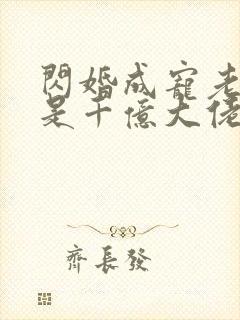 閃婚成寵老
是千億大佬
齊長發